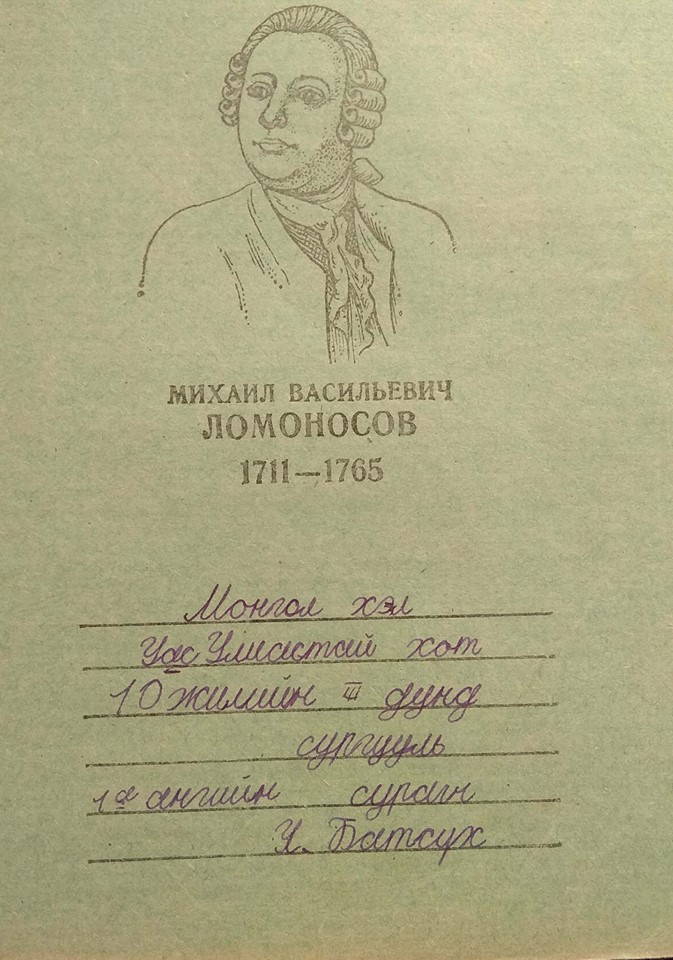 МИХАИЛ ВАСИЛЬЕВИЧ
ЛОМОНОСОВ
1711—1765
Монгол хэл
Улиастай хот
10 жилийн III дунд
сургууль
1а ангийн сурагч
У. Батсүх